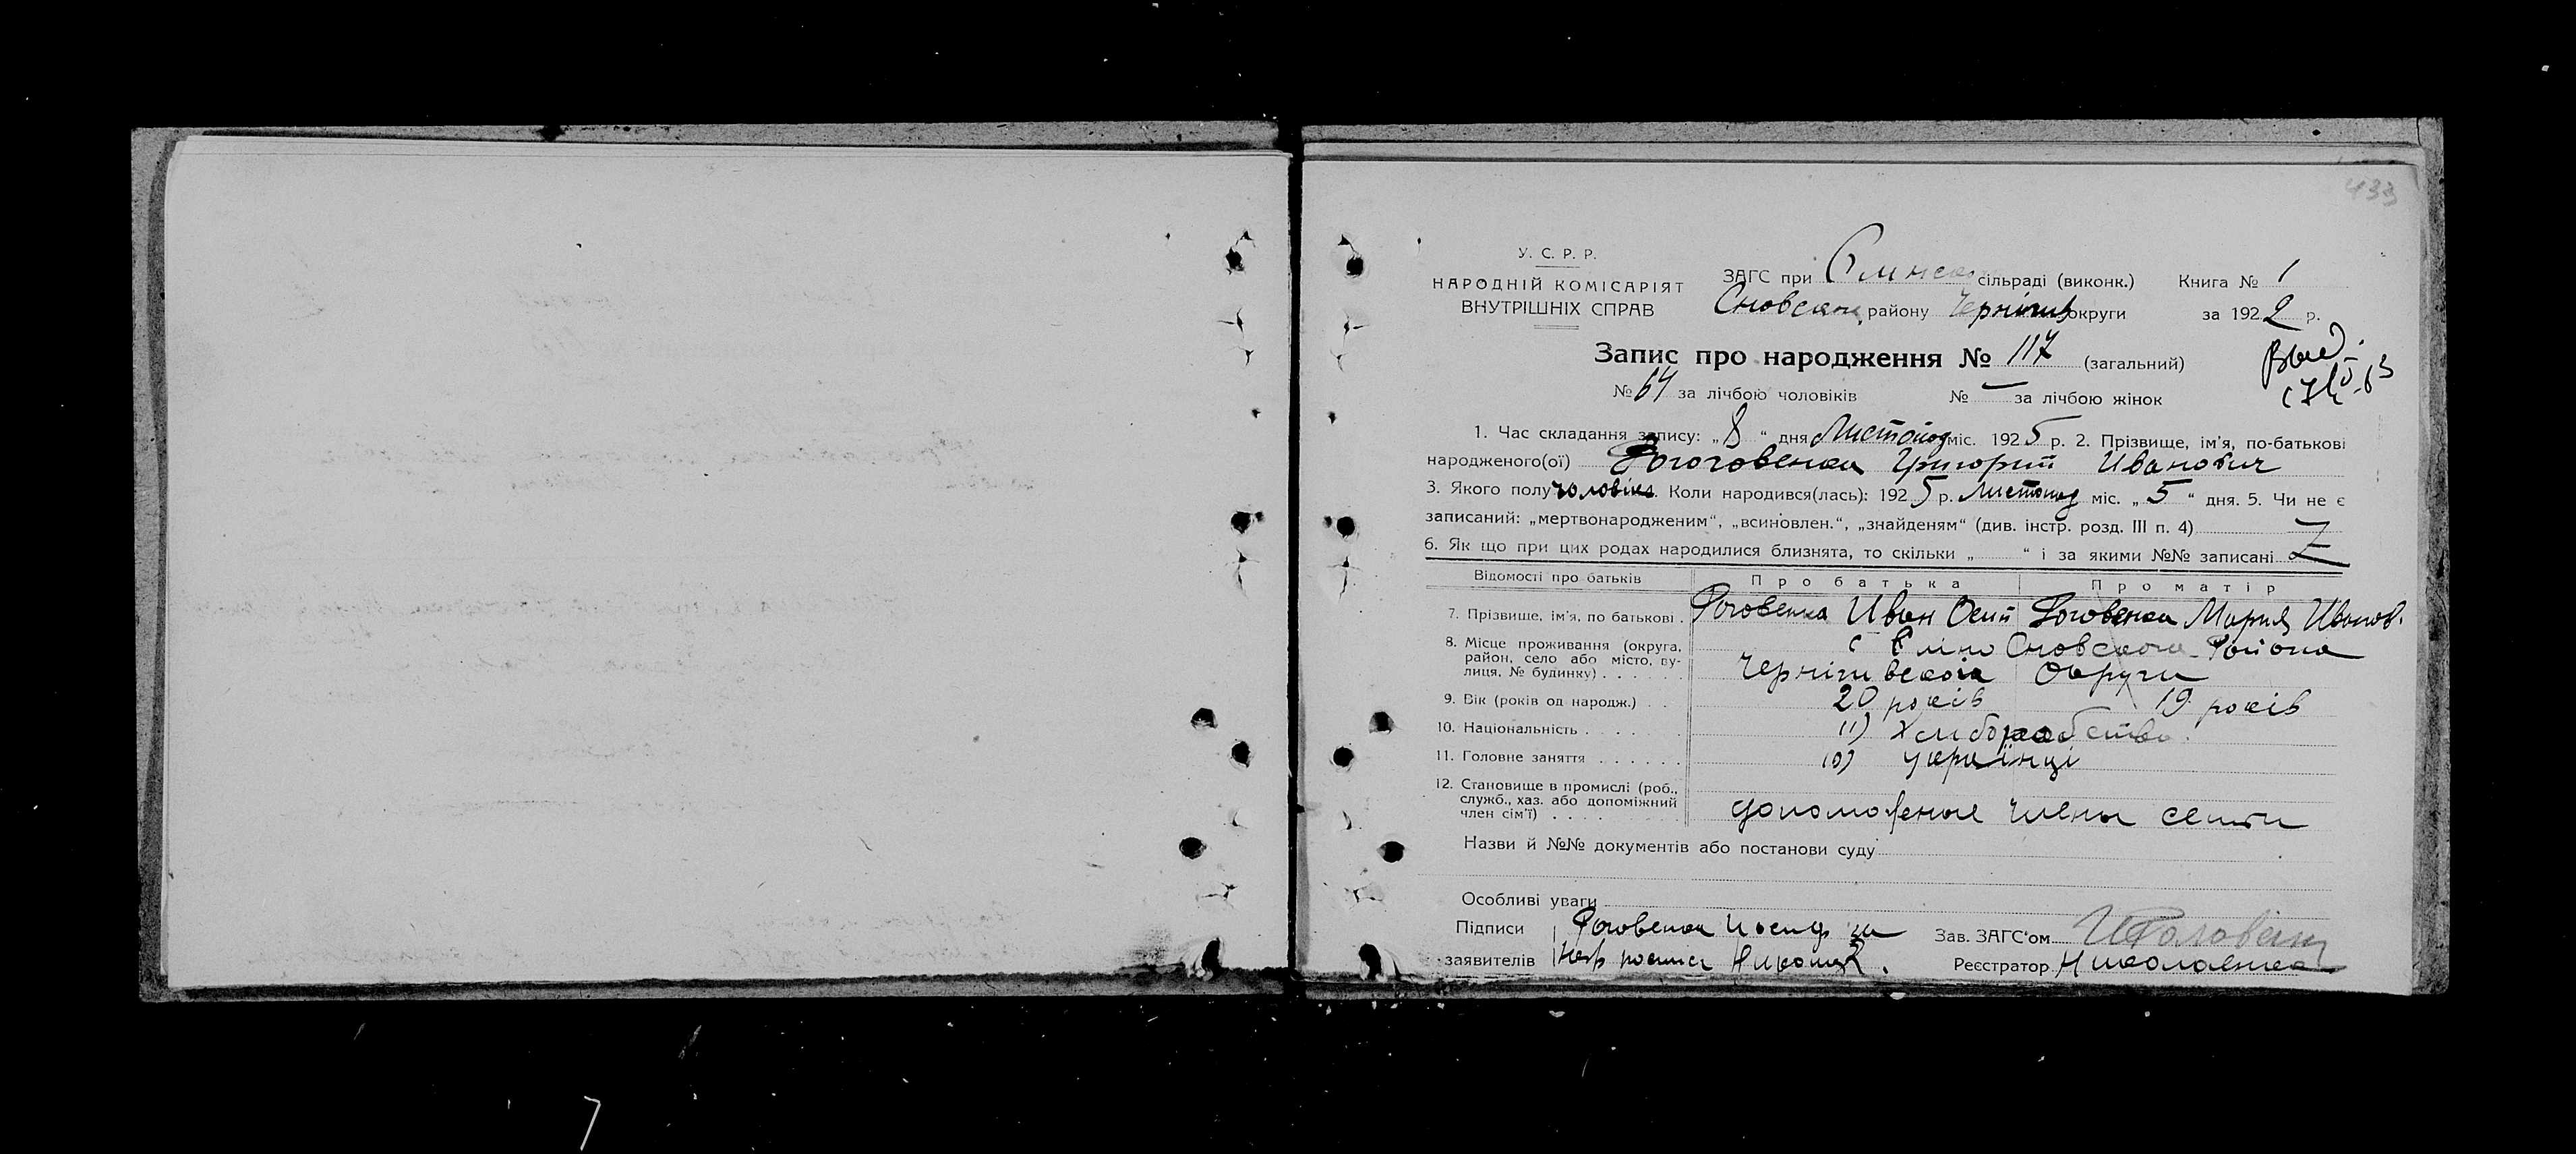 433
У. С. Р. Р.
НАРОДНІЙ КОМІСАРІЯТ
ВНУТРІШНІХ СПРАВ
ЗАГС при сільраді (виконк.) Книга № 1
Сновськ. району Чернігів округи за 1922 р.
Запис про народження № 117 (загальний)
№ 64 за лічбою чоловіків № — за лічбою жінок
1. Час складання запису: „8“ дня Листопад міс. 1925 р. 2. Прізвище, ім'я, по-батькові
народженого(ої) Григорий Иванович
3. Якого полу чоловіка. Коли народився(лась): 1925 р. Листопад міс. „5“ дня. 5. Чи не є
записаний: „мертвонародженим“, „всиновлен.“, „знайденям“ (див. інстр. розд. III п. 4)
6. Як що при цих родах народилися близнята, то скільки „ “ і за якими №№ записані
Відомості про батьків Про батька Про матір
7. Прізвище, ім'я, по батькові . Роговенка Иван Осип Роговенка Мария Иванов.
8. Місце проживання (округа, район, село або місто, вулиця, № будинку) . . . . . . с Сновського Района
Чернігивскоі Округи
9. Вік (років од народж.) . . 20 років 19 років
10. Національність . . . . . . 11) Хлиборобство
11. Головне заняття . . . . . . 10) українці
12. Становище в промислі (роб., служб., хаз. або допоміжний член сім'ї) . . . . допоможеные члены семти
Назви й №№ документів або постанови суду
Особливі уваги
Підписи Роговенка Иосиф Зав. ЗАГС'ом
заявителів Реєстратор Николаенко